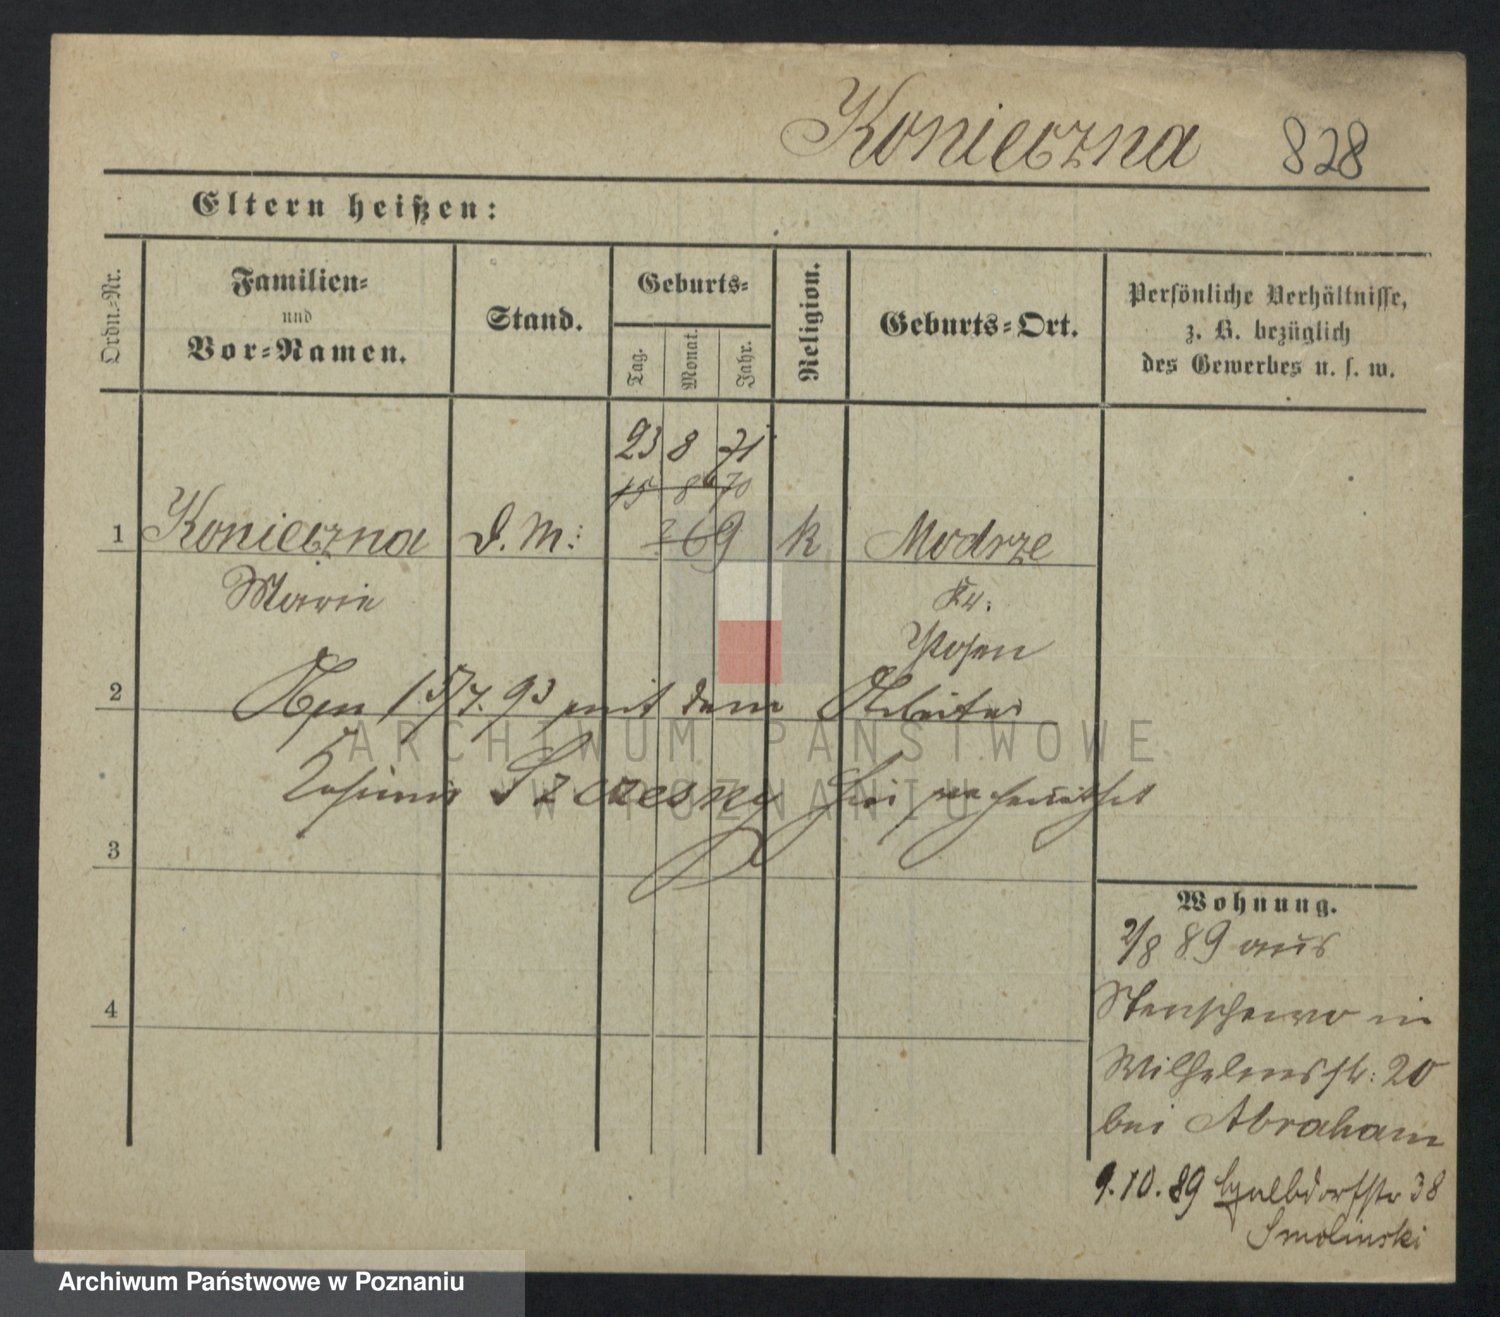 Konieczna 828
Eltern heißen:
Ordn.-Nr.
Familien-
und
Vor-Namen.
Stand.
Geburts-
Tag.
Monat.
Jahr.
Religion.
Geburts-Ort.
Persönliche Verhältnisse,
z. B. bezüglich
des Gewerbes u. s. w.
23 8 71
15 8 70
1 Konieczna D. M. 69 k Modrze
Marie Kr.
Posen
2 15/7. 93 mit dem Arbeiter
Kasimir Szczesny hier verheirathet
3
Wohnung.
2/8 89 aus
Stenschewo in
4
Wilhelmsstr: 20
bei Abraham
9.10.89 Halbdorfstr 38
Smolinski
ARCHIWUM PAŃSTWOWE
W POZNANIU
Archiwum Państwowe w Poznaniu